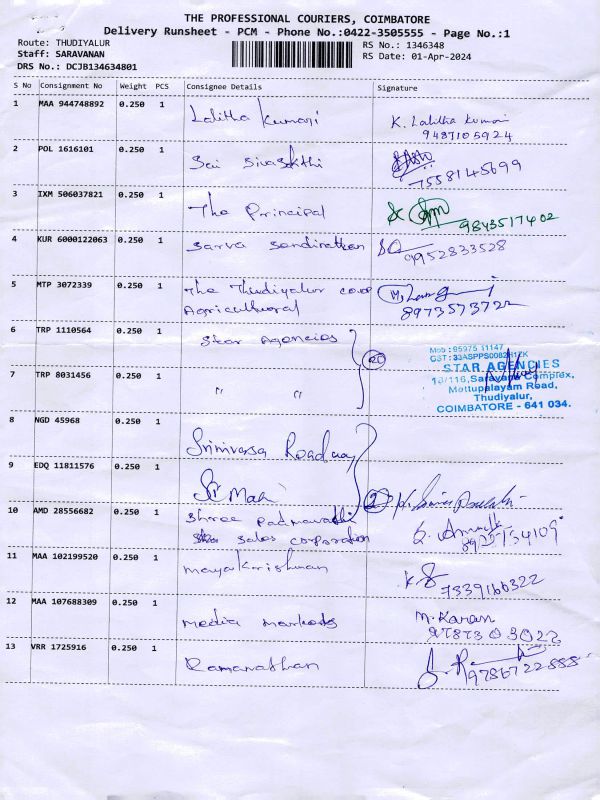 THE PROFESSIONAL COURIERS, COIMBATORE
Delivery Runsheet - PCM - Phone No.:0422-3505555 - Page No.:1
Route: THUDIYALUR
RS No.: 1346348
Staff: SARAVANAN
RS Date: 01-Apr-2024
DRS No.: DCJB134634801
S No Consignment No Weight PCS Consignee Details Signature
1 MAA 944748892 0.250 1 Lalitha Kumari K. Lalitha Kumari
9487105924
2 POL 1616101 0.250 1 Sai Sivasakthi
7558145699
3 IXM 506037821 0.250 1 The Principal 9843517402
4 KUR 6000122063 0.250 1 Sarva 9952833528
5 MTP 3072339 0.250 1 The Thudiyalur coop
Agricultural 8973573722
6 TRP 1110564 0.250 1 Star Agencies
Mob : 95975 11147
STAR AGENCIES
13/116, Saravana Complex,
Mettupalayam Road,
Thudiyalur,
COIMBATORE - 641 034.
7 TRP 8031456 0.250 1 " "
8 NGD 45968 0.250 1 Srinivasa Roadway
9 EDQ 11811576 0.250 1 Sri Maa 2
10 AMD 28556682 0.250 1 Shree Padmavathi
Sales corporation
11 MAA 102199520 0.250 1 mayakrishnan K 7339166322
12 MAA 107688309 0.250 1 media markets M. Kanan
9787303022
13 VRR 1725916 0.250 1 Ramanathan
9786722888